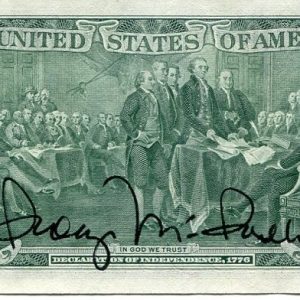 UNITED STATES OF AME
IN GOD WE TRUST
DECLARATION OF INDEPENDENCE, 1776